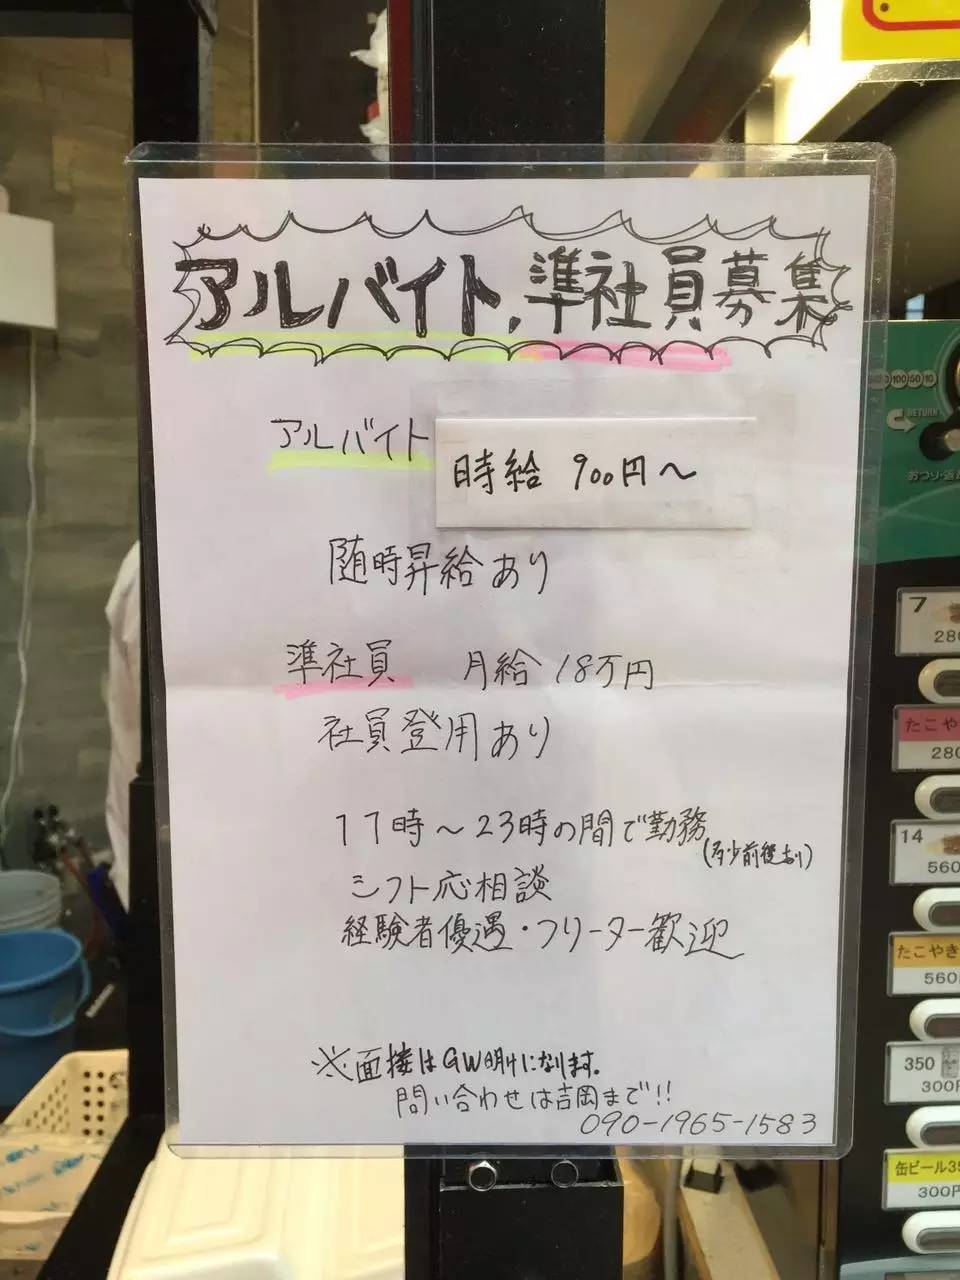 アルバイト,準社員募集
アルバイト 時給 900円～
随時昇給あり
準社員 月給 18万円
社員登用あり
11時～23時の間で勤務
(多少前後あり)
シフト応相談
経験者優遇・フリーター歓迎
※面接はGW明けになります。
問い合わせは吉岡まで!!
090-1965-1583
100 50 10
RETURN
7
280
たこや
280
14
560
たこやき
560
350
300
缶ビール35
300